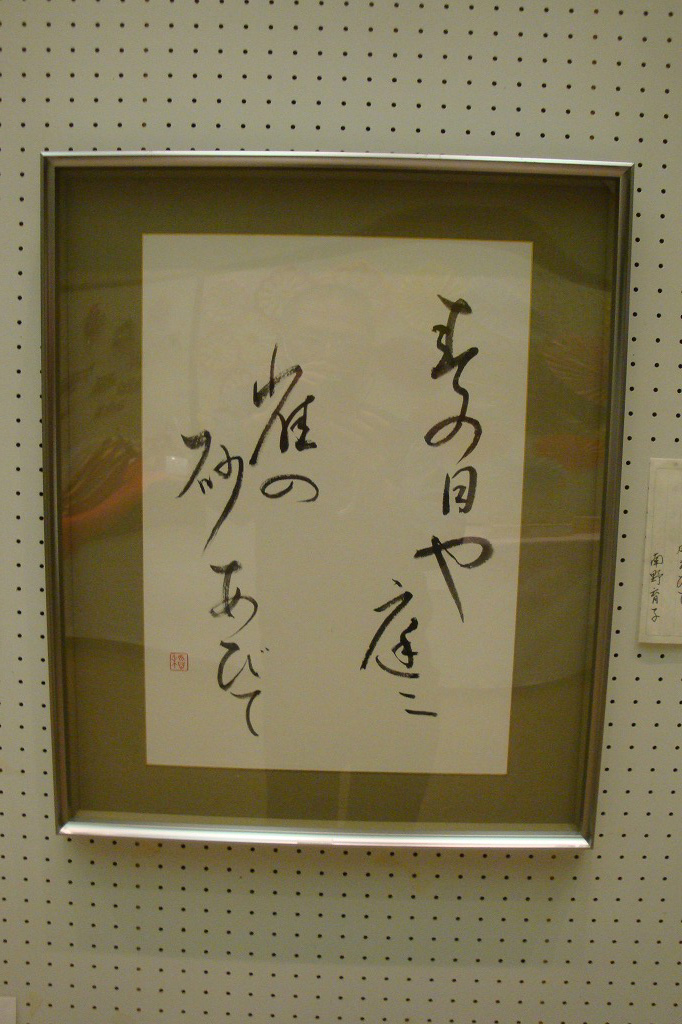 春の日や
庭ニ
雀の
砂あびて
南野育子